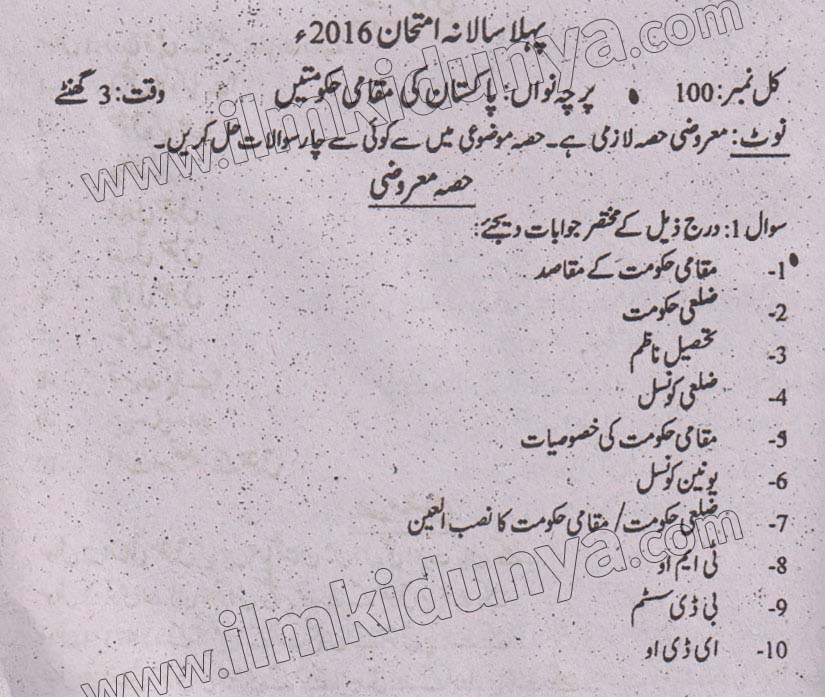 پہلا سالانہ امتحان 2016ء
کل نمبر: 100 پرچہ نواں: پاکستان کی مقامی حکومتیں وقت: 3 گھنٹے
نوٹ: معروضی حصہ لازمی ہے۔ حصہ موضوعی میں سے کوئی سے چار سوالات حل کریں۔
حصہ معروضی
سوال 1: درج ذیل کے مختصر جوابات دیجئے:
1- مقامی حکومت کے مقاصد
2- ضلعی حکومت
3- تحصیل ناظم
4- ضلعی کونسل
5- مقامی حکومت کی خصوصیات
6- یونین کونسل
7- ضلعی حکومت/ مقامی حکومت کا نصب العین
8- ٹی ایم او
9- بی ڈی سسٹم
10- ای ڈی او
www.ilmkidunya.com
www.ilmkidunya.com